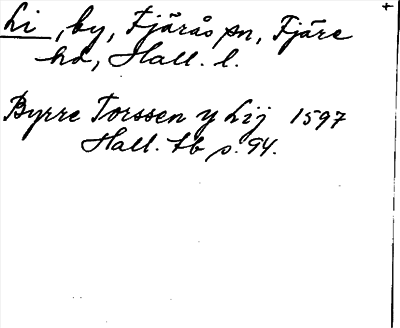 Li, by, Fjärås sn, Fjäre
hd, Hall. l.
Byrre Torssen y Lij 1597
Hall. tb s. 94.